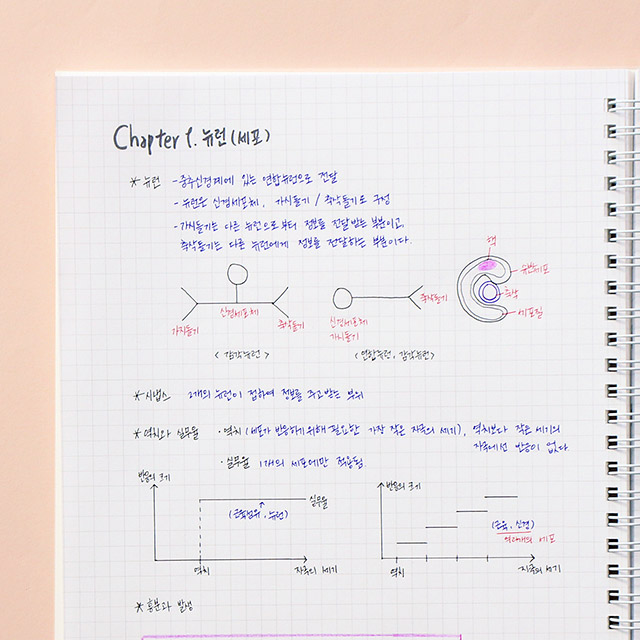 Chapter 1. 뉴런 (세포)
* 뉴런 - 중추신경계에 있는 연합뉴런으로 전달
- 뉴런은 신경세포체, 가지돌기 / 축삭돌기로 구성
- 가지돌기는 다른 뉴런으로부터 정보를 전달받는 부분이고,
축삭돌기는 다른 뉴런에게 정보를 전달하는 부분이다.
가지돌기
신경세포체
축삭돌기
< 감각뉴런 >
신경세포체
가지돌기
축삭돌기
(연합뉴런, 감각뉴런)
핵
슈반세포
축삭
세포질
* 시냅스 2개의 뉴런이 접하여 정보를 주고받는 부위
* 역치와 실무율 · 역치 (세포가 반응하기 위해 필요한 가장 작은 자극의 세기), 역치보다 작은 세기의
자극에선 반응이 없다
· 실무율 1개의 세포에만 적용됨.
반응의 크기
실무율
(근육섬유, 뉴런)
역치
자극의 세기
반응의 크기
(근육, 신경)
여러개의 세포
역치
자극의 세기
* 흥분과 발생